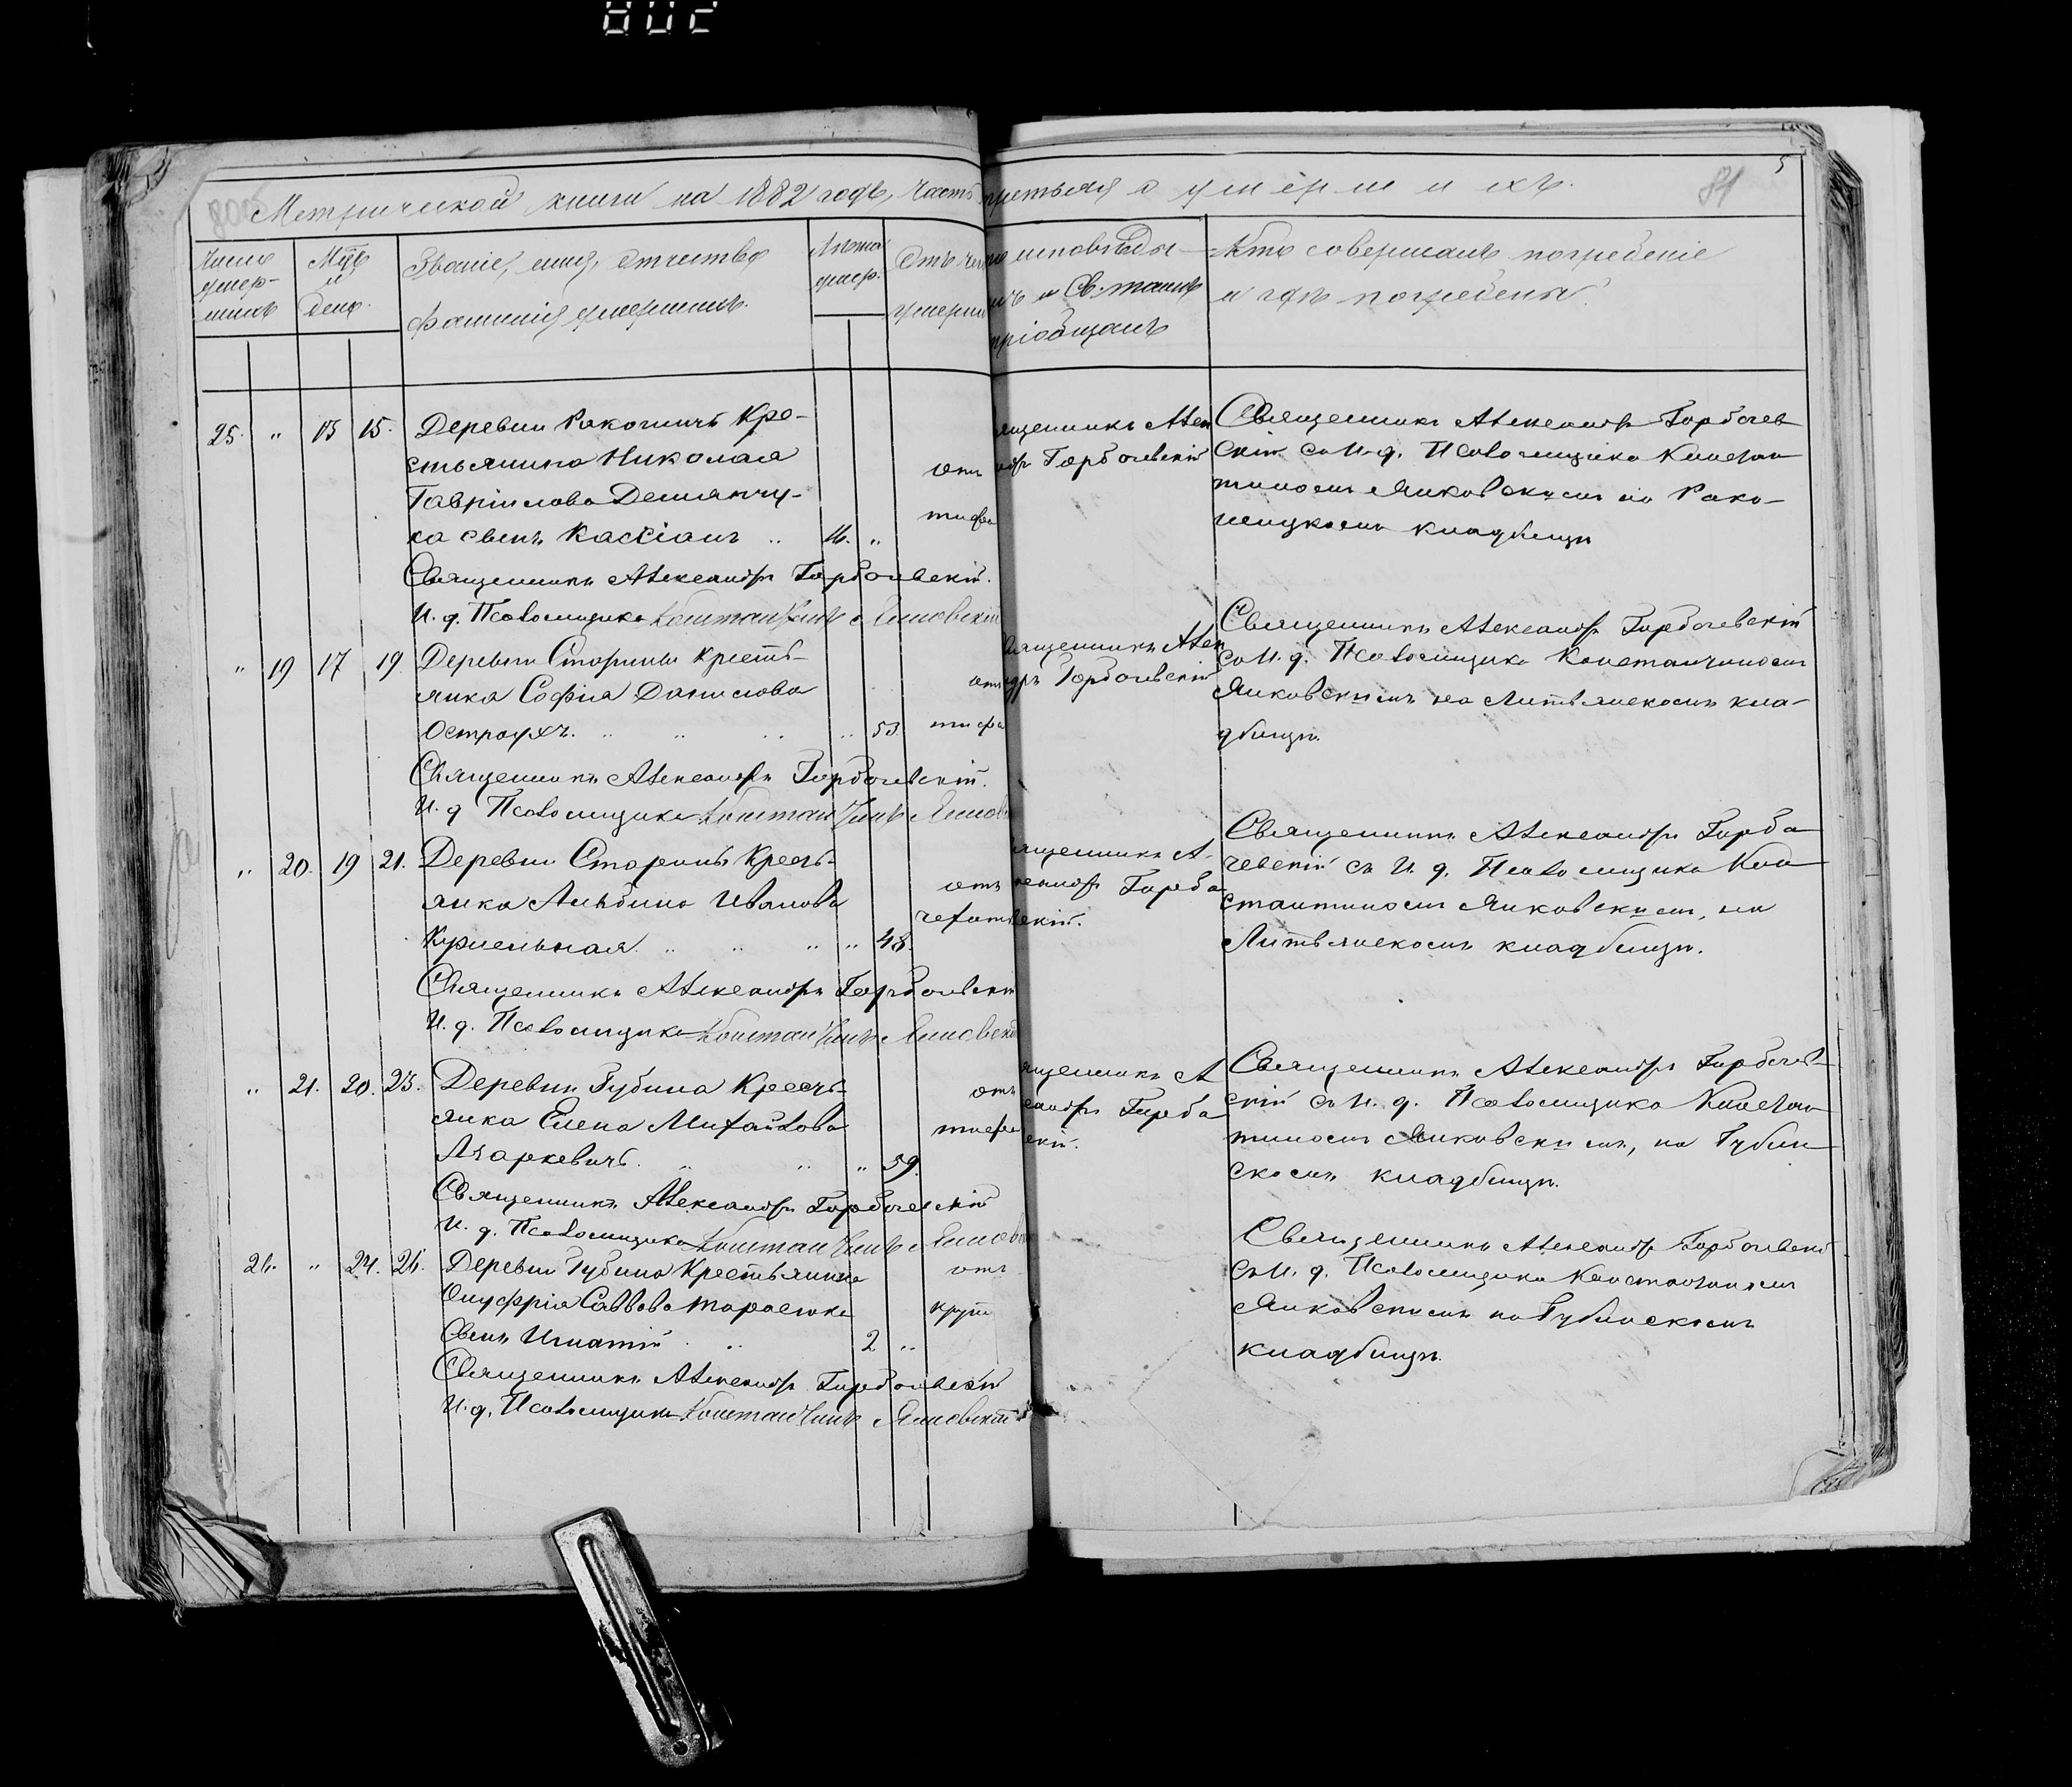 002
Метрической книги на 1882 годъ, часть третья о умершихъ.
5
81
Число умер-шихъ
Мцъ и день.
Званіе, имя, отчество
фамилія умершихъ.
Лѣта умер.
Отъ чего
умерли
исповѣды-
и Св. таинъ
пріобщалъ
Кто совершалъ погребеніе
и гдѣ погребены.
25. " 13 15. Деревни Ракочичь Кре-
стьянина Николая
Гавріилова Демянчу-
ка сынъ Кассіанъ .. 16. "
отъ
тифа
Священникъ Александръ Горбачевскій.
И. д. Псаломщика Константинъ Янковскій
ященникъ Алек
андръ Горбачевскій
Священникъ Александръ Горбачев
скій съ И. д. Псаломщика Констан
тиномъ Янковскимъ на Рако-
чицкомъ кладбищѣ
" 19 17 19 Деревни Стороны Кресть-
янка Софія Данилова
Остроухъ. .. .. .. .. 53
отъ
тифа
Священникъ Александръ Горбачевскій.
И. д. Псаломщика Константинъ Янков
ященникъ Алек
андръ Горбачевскій
Священникъ Александръ Горбачевскій
съ И. д. Псаломщика Константиномъ
Янковскимъ на Литвянскомъ кла-
дбищѣ.
" 20. 19 21. Деревни Стороны Кресть-
янка Альбина Иванова
Курильная. .. .. .. .. 48.
отъ
чехотки
Священникъ Александръ Горбачевскій
И. д. Псаломщика Константинъ Янковскі
ященникъ А-
лександръ Горба
вскій.
Священникъ Александръ Горба
чевскій съ И. д. Псаломщика Кон
стантиномъ Янковскимъ, на
Литвянскомъ кладбищѣ.
" 21. 20. 23. Деревни Губина Кресть-
янка Елена Михайлова
Азаркевичъ. .. .. .. 59.
отъ
тифа
Священникъ Александръ Горбачевскій
И. д. Псаломщика Константинъ Янков
ященникъ А
ександръ Горба
скій.
Священникъ Александръ Горбачев-
скій съ И. д. Псаломщика Констан
тиномъ Янковскимъ, на Губин
скомъ кладбищѣ.
26. " 24. 26. Деревни Губина Крестьянина
Онуфрія Саввова Тарасюка
Сынъ Игнатій .. 2 "
отъ
круп
Священникъ Александръ Горбачевскій
И. д. Псаломщика Константинъ Янковскій
Священникъ Александръ Горбачевскій
съ И. д. Псаломщика Константиномъ
Янковскимъ на Губинскомъ
кладбищѣ.